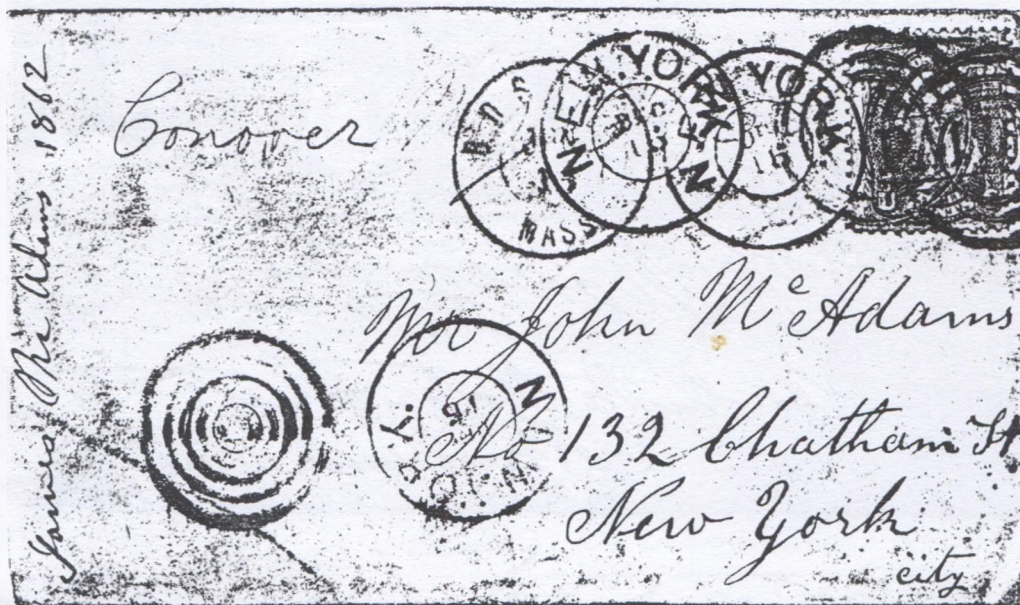 James Mc Adams 1862
Conover
MASS
NEW YORK
N YORK
Mr John Mc Adams
No 132 Chatham St
New York
city